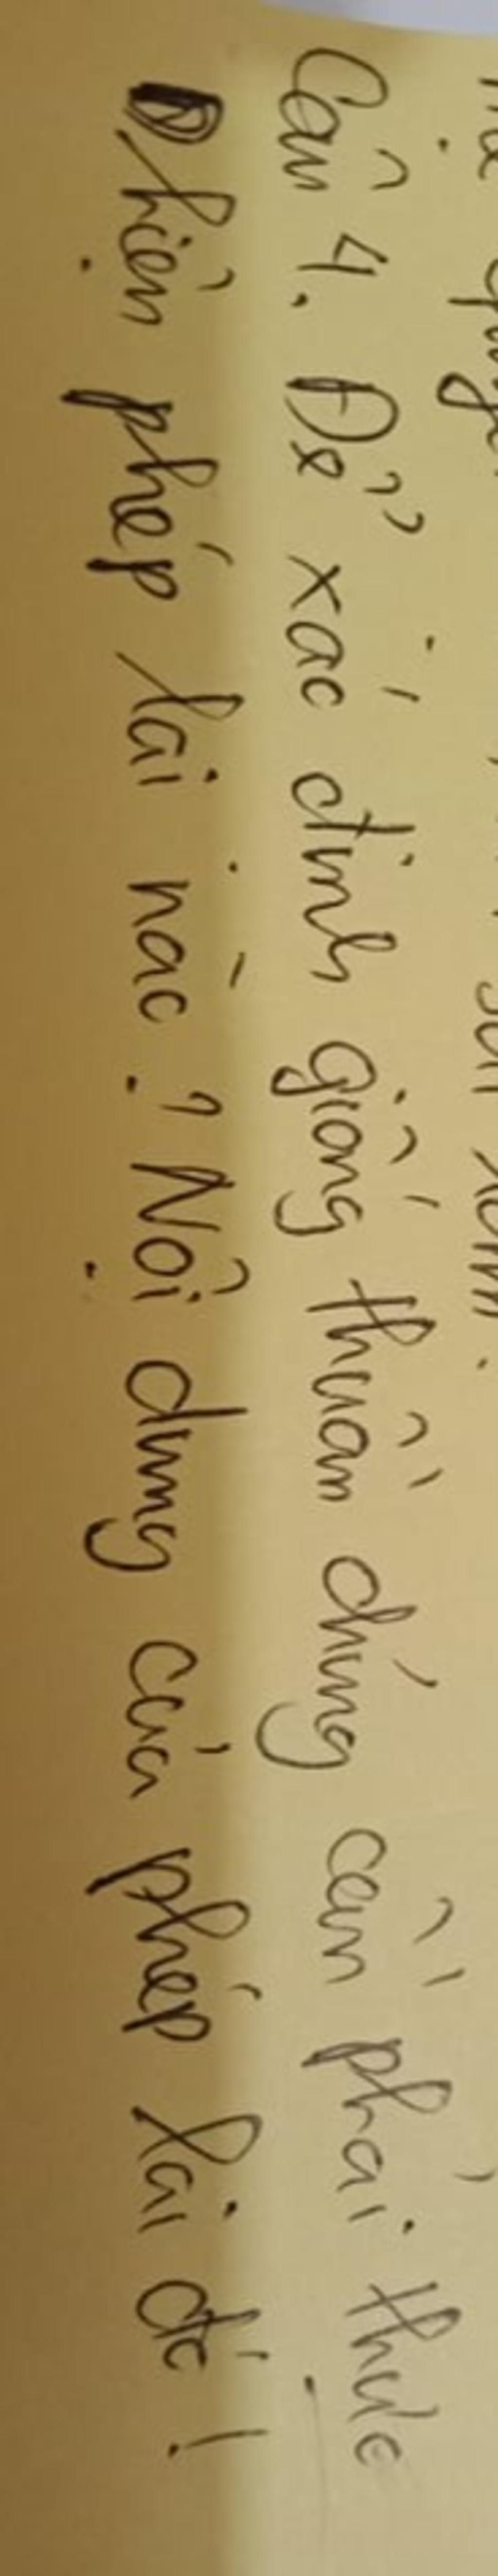 Câu 4. Để xác định giống thuần chủng cần phải thực
hiện phép lai nào? Nội dung của phép lai đó!